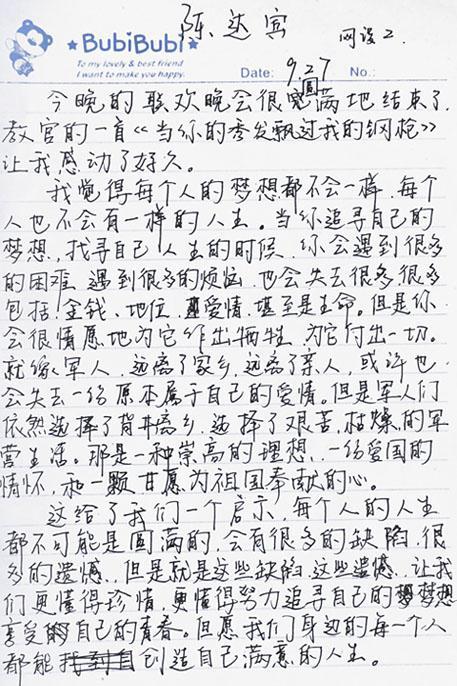 陈达宾 网设2.
BubiBubi
To my lovely & best friend
I want to make you happy.
Date: 9.27 No.:
今晚的联欢晚会很圆满地结束了
教官的一首《当你的秀发飘过我的钢枪》
让我感动了好久。
我觉得每个人的梦想都不会一样,每个
人也不会有一样的人生。当你追寻自己的
梦想,找寻自己人生的时候,你会遇到很多
的困难,遇到很多的烦恼,也会失去很多,很多
包括:金钱、地位、爱情、甚至是生命。但是你
会很情愿地为它作出牺牲,为它付出一切。
就像军人,远离了家乡,远离了亲人,或许也
会失去一份原本属于自己的爱情。但是军人们
依然选择了背井离乡,选择了艰苦、枯燥的军
营生活。那是一种崇高的理想、一份爱国的
情怀,和一颗甘愿为祖国奉献的心。
这给了我们一个启示,每个人的人生
都不可能是圆满的,会有很多的缺陷,很
多的遗憾,但是就是这些缺陷,这些遗憾,让我
们更懂得珍惜,更懂得努力追寻自己的梦想
享受自己的青春。但愿我们身边的每一个人
都能创造自己满意的人生。